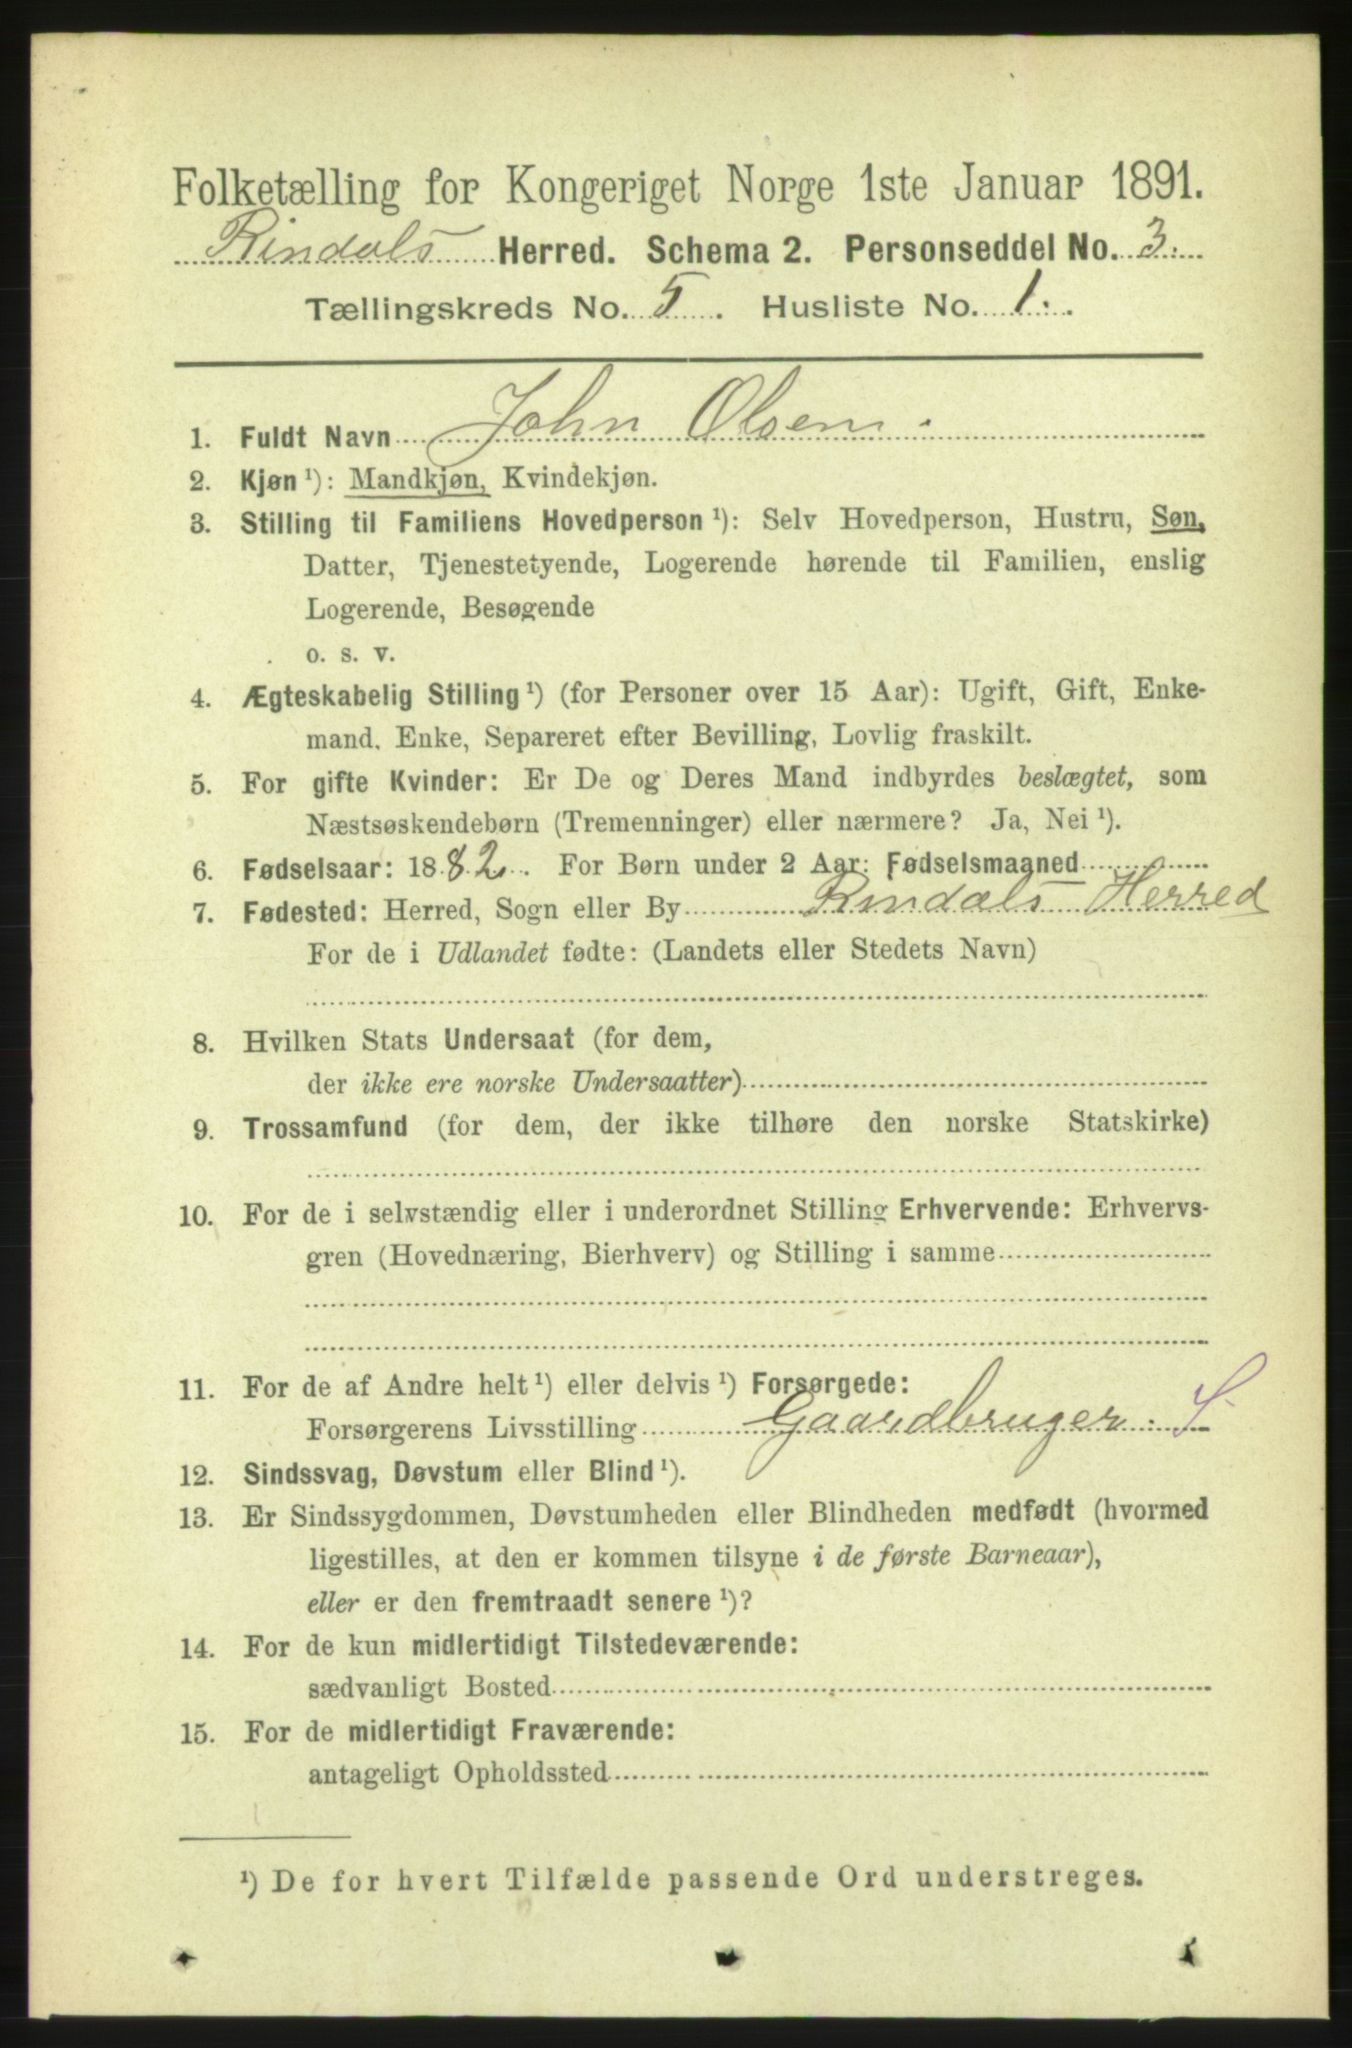 Folketælling for Kongeriget Norge 1ste Januar 1891.
Rindals Herred. Schema 2. Personseddel No. 3.
Tællingskreds No. 5. Husliste No. 1.
1. Fuldt Navn John Olsen.
2. Kjøn ¹): Mandkjøn, Kvindekjøn.
3. Stilling til Familiens Hovedperson ¹): Selv Hovedperson, Hustru, Søn,
Datter, Tjenestetyende, Logerende hørende til Familien, enslig
Logerende, Besøgende
o. s. v.
4. Ægteskabelig Stilling ¹) (for Personer over 15 Aar): Ugift, Gift, Enke-
mand, Enke, Separeret efter Bevilling, Lovlig fraskilt.
5. For gifte Kvinder: Er De og Deres Mand indbyrdes beslægtet, som
Næstsøskendebørn (Tremenninger) eller nærmere? Ja, Nei ¹).
6. Fødselsaar: 1882. For Børn under 2 Aar: Fødselsmaaned
7. Fødested: Herred, Sogn eller By Rindals Herred
For de i Udlandet fødte: (Landets eller Stedets Navn)
8. Hvilken Stats Undersaat (for dem,
der ikke ere norske Undersaatter)
9. Trossamfund (for dem, der ikke tilhøre den norske Statskirke)
10. For de i selvstændig eller i underordnet Stilling Erhvervende: Erhvervs-
gren (Hovednæring, Bierhverv) og Stilling i samme
11. For de af Andre helt ¹) eller delvis ¹) Forsørgede:
Forsørgerens Livsstilling Gaardbruger. S.
12. Sindssvag, Døvstum eller Blind ¹).
13. Er Sindssygdommen, Døvstumheden eller Blindheden medfødt (hvormed
ligestilles, at den er kommen tilsyne i de første Barneaar),
eller er den fremtraadt senere ¹)?
14. For de kun midlertidigt Tilstedeværende:
sædvanligt Bosted
15. For de midlertidigt Fraværende:
antageligt Opholdssted
¹) De for hvert Tilfælde passende Ord understreges.